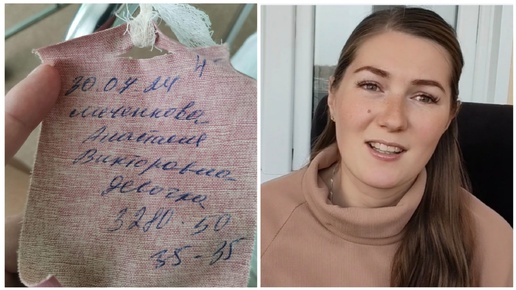 30.07.24 4-
Анастасия
Викторовна
девочка
3280·50
35-35